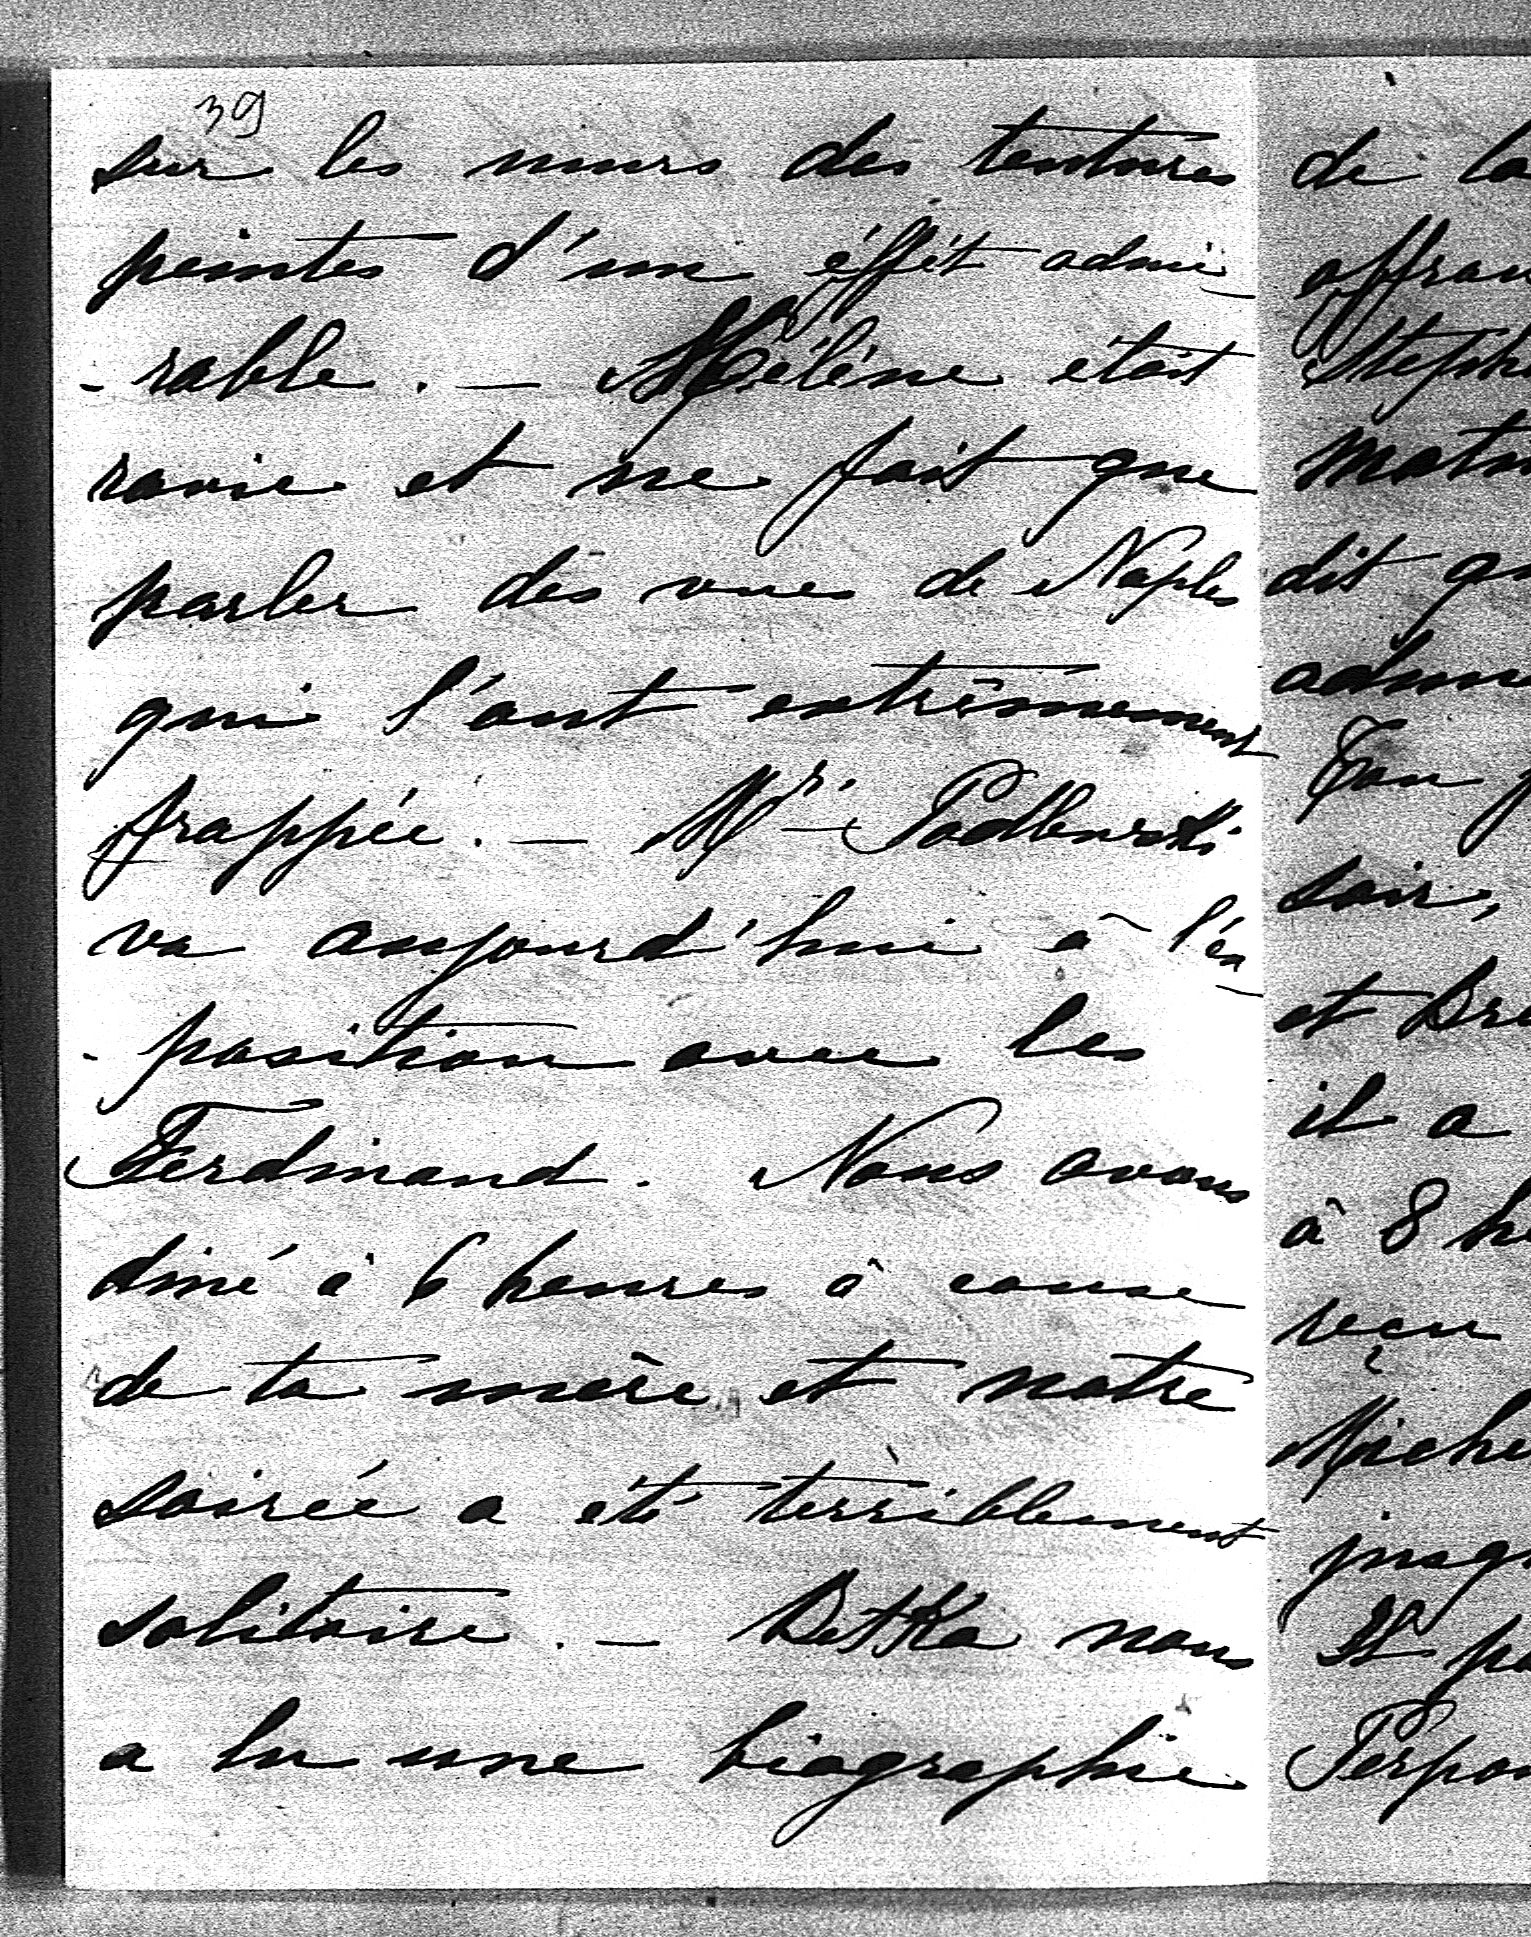 39
sur les murs des tentures
peintes d'un éffèt admi-
-rable. — Hélène était
ravie et ne fait que
parler des vues de Naples
qui l'ont extrêmement
frappée. — Mr. Podlewski
va aujourd'hui à l'ex-
-position avec les
Ferdinand. Nous avons
diné à 6 heures à cause
de ta mère et notre
soirée a été terriblement
solitaire. — Betka nous
a lu une biographie
de la
affran
Steph
matin
dit qu
admi
Ton p
soir,
et Bre
il a
à 8 he
reçu
Miche
jusqu
pa
Perpon